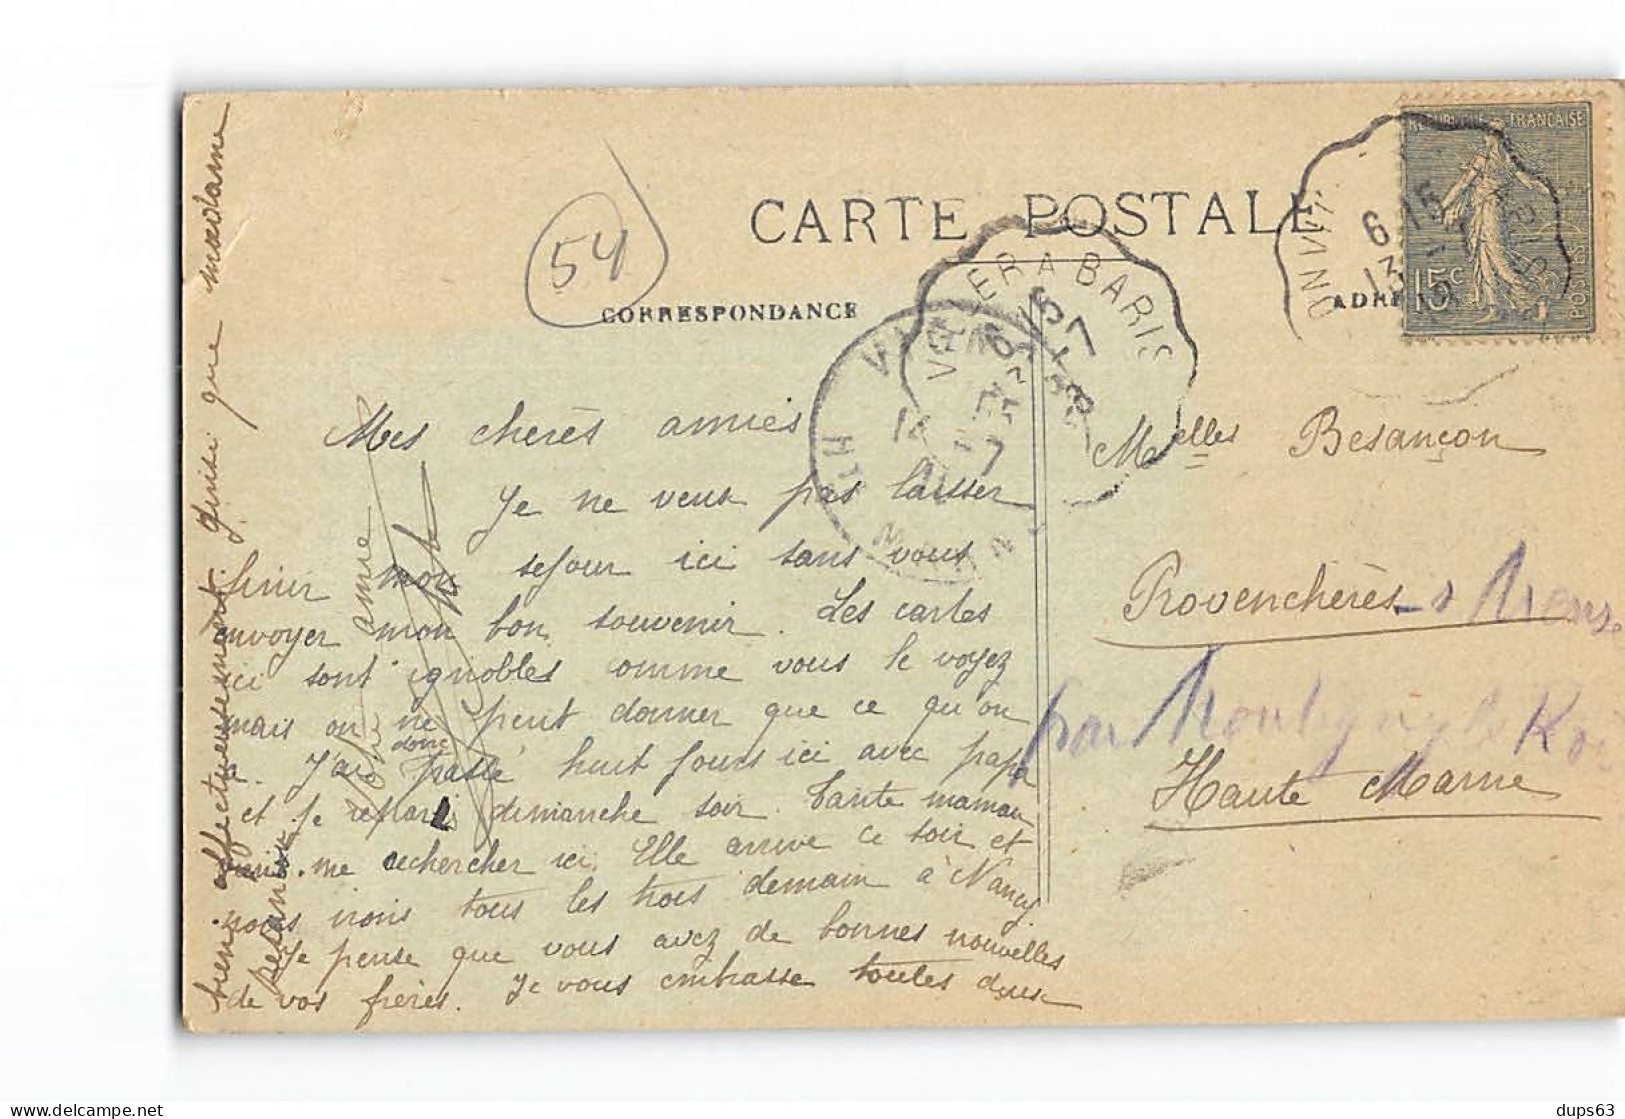 CARTE POSTALE
CORRESPONDANCE
54
REPUBLIQUE FRANÇAISE
15c
POSTES
6-15
13
VERA BARIS
Mes chères amies
Je ne veux pas laisser
finir mon sejour ici sans vous
envoyer mon bon souvenir. Les cartes
ici sont ignobles comme vous le voyez
mais on ne peut donner que ce qu'on
a. J'ai donc passé huit jours ici avec papa
et je repars dimanche soir. Tante maman
me rechercher ici. Elle arrive ce soir et
nous irons tous les trois demain à Nancy
Je pense que vous avez de bonnes nouvelles
de vos frères. Je vous embrasse toutes deux
bien affectueusement. ainsi que madame
Besançon
Votre amie
Melles Besançon
Provenchères - s Meuse
par Montigny le Roi
Haute Marne
dups63